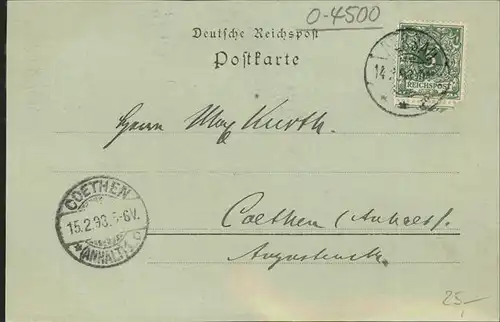 0-4500
Deutsche Reichspost
Postkarte
DESSAU
14.
REICHSPOST
Herrn Max Kurth.
COETHEN
15.2.93.5-6V.
(ANHALT)
Coethen (Anhalt).
Augustenstr.
25,-